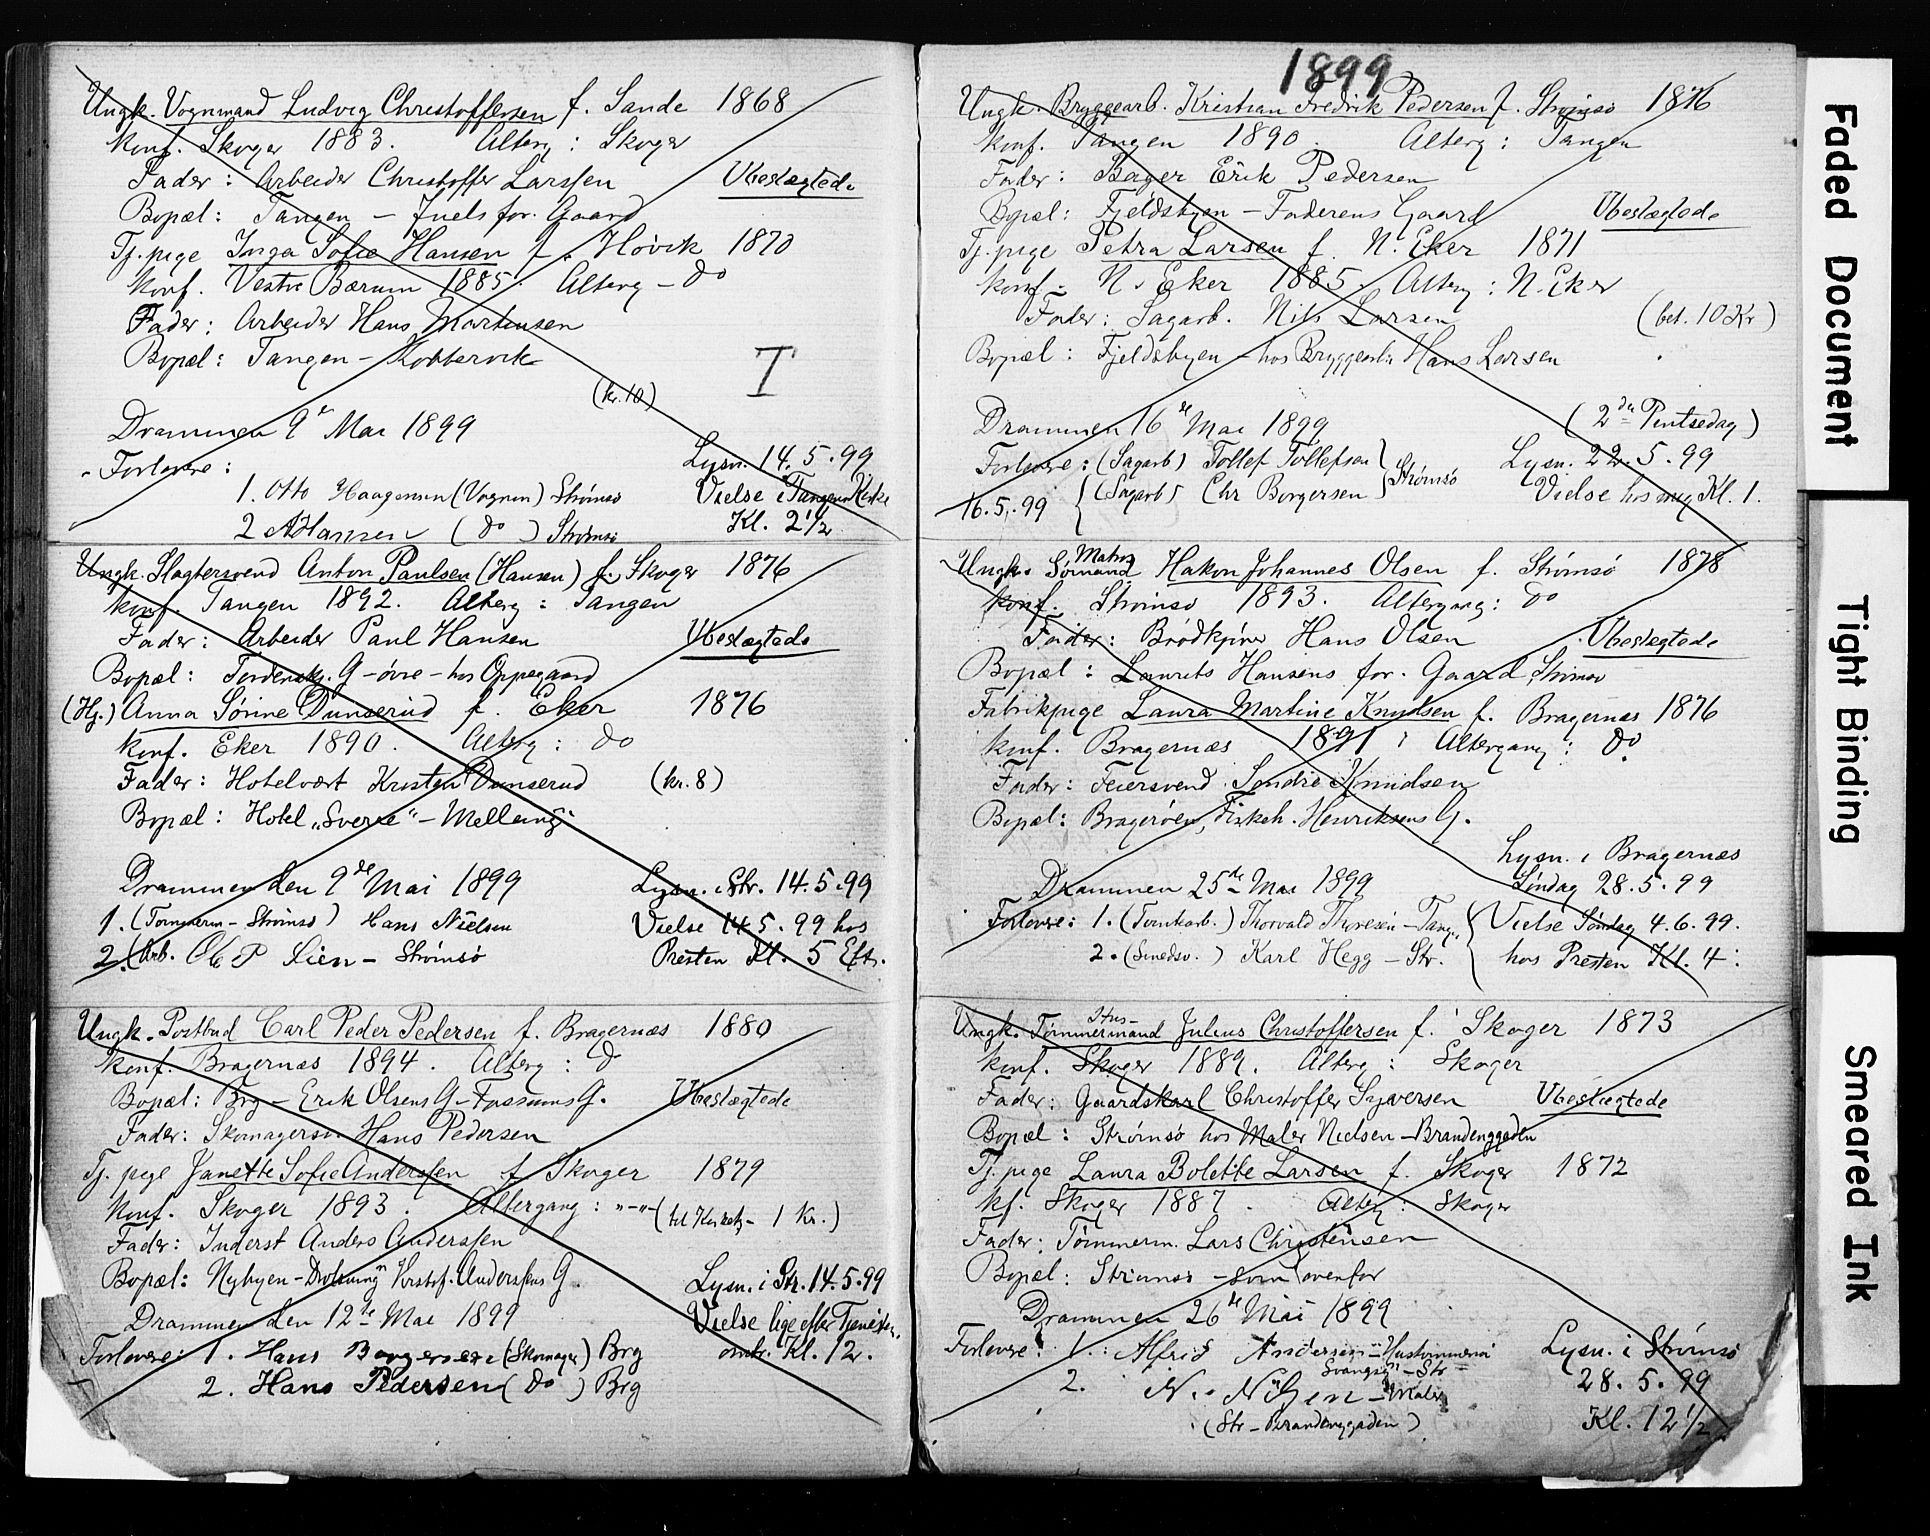 Ungk. Vognmand Ludvig Christoffersen f. Sande 1868
Konf. Skoger 1883. Alterg: Skoger
Fader: Arbeider Christoffer Larssen Ubeslægtede
Bopæl: Tangen – Juels for. Gaard
Tj.pige Inga Sofie Hansen f. Høvik 1870
Konf. Vestre Bærum 1885. Alterg – do
Fader: Arbeider Hans Martinsen
Bopæl: Tangen – Kobbervik
I
(kr. 10)
Drammen 9de Mai 1899
Forlovere: Lysn. 14.5.99
1. Otto Haagensen (Vognm) Strømsø Vielse i Tangens Kirke
2 A Hansen (do) Strømsø Kl. 2½
Ungk. Slagtersvend Anton Paulsen (Hansen) f. Skoger 1876
Konf. Tangen 1892. Alterg: Tangen
Fader: Arbeider Paul Hansen Ubeslægtede
Bopæl: G – øvre – hos Oppegaard
(Hj.) Anna Sørine Dunserud f. Eker 1876
Konf. Eker 1890. Alterg: do
Fader: Hotelvært Kristen Dunserud (kr. 8)
Bopæl: Hotel „Sverre“ – Mellemg
Drammen den 9de Mai 1899 Lysn. i Str. 14.5.99
1. (Tømmerm – Strømsø) Hans Nielsen Vielse 14.5.99 hos
2. (Arb. Ole P Lien – Strømsø Presten Kl. 5 Eft.
Ungk. Postbud Carl Peder Pedersen f. Bragernæs 1880
Konf. Bragernæs 1894. Alterg: do
Bopæl: Brg – Erik Olsens G – Fossums G. Ubeslægtede
Fader: Skomagersv. Hans Pedersen
Tj. pige Janette Sofie Anderssen f. Skoger 1879
Konf. Skoger 1893. Altergang: „–“– (til Kirketj – 1 Kr.)
Fader: Inderst Anders Anderssen
Bopæl: Nybyen – Anderssens G. Lysn. i Str. 14.5.99
Drammen den 12te Mai 1899 Vielse lige efter Tjenesten,
Forlovere: 1. Hans Borgersen (Skomager) Brg omtr. Kl. 12.
2. Hans Pedersen (do) Brg
1899
Ungk. Bryggearb. Kristian Fredrik Pedersen f. Strømsø 1876
Konf. Tangen 1890. Alterg: Tangen
Fader: Bager Erik Pedersen
Bopæl: Fjeldsbyen – Faderens Gaard Ubeslægtede
Tj. pige Petra Larsen f. N. Eker 1871
Konf. N. Eker 1885. Alterg: N. Eker
Fader: Sagarb. Nils Larsen (bet. 10 Kr)
Bopæl: Fjeldsbyen – hos Bryggearb Hans Larsen
Drammen 16de Mai 1899 (2den Pintsedag)
Forlovere: (Sagarb) Tollef Tollefsen Strømsø Lysn. 22.5.99
16.5.99 (Sagarb) Chr Borgersen Vielse hos mig Kl. 1.
Ungk. Sømand Matros Hakon Johannes Olsen f. Strømsø 1878
Konf. Strømsø 1893. Altergang: do
Fader: Brødkjører Hans Olsen Ubeslægtede
Bopæl: Laurits Hansens for. Gaard, Strømsø
Fabrikpige Laura Martine Knudsen f. Bragernæs 1876
Konf. Bragernæs 1891. Altergang: do.
Fader: Feiersvend Sondre Knudsen
Bopæl: Bragerøen, Fiskeh. Henriksens G.
Lysn. i Bragernæs
Drammen 25de Mai 1899 Søndag 28.5.99
Forlovere: 1. (Tomtearb.) Thorvald Thoresen – Tang. Vielse Søndag 4.6.99.
2. (Smedsv.) Karl Hegg – Str. hos Presten Kl. 4.
Ungk. Hus-Tømmermand Julius Christoffersen f. Skoger 1873
Konf. Skoger 1889. Alterg: Skoger
Fader: Gaardskarl Christoffer Syversen Ubeslægtede
Bopæl: Strømsø hos Maler Nielsen – Brandenggaden
Tj. pige Laura Bolette Larsen f. Skoger 1872
Kf. Skoger 1887. Alterg: Skoger
Fader: Tømmerm. Lars Christensen
Bopæl: Strømsø – som ovenfor
Drammen 26de Mai 1899
Forlovere: 1. Alfred Andersen Lysn. i Strømsø
– Str
2. N. Nilsen – Maler 28.5.99
(Str – Brandenggaden) Kl. 12½
Faded Document
Tight Binding
Smeared Ink